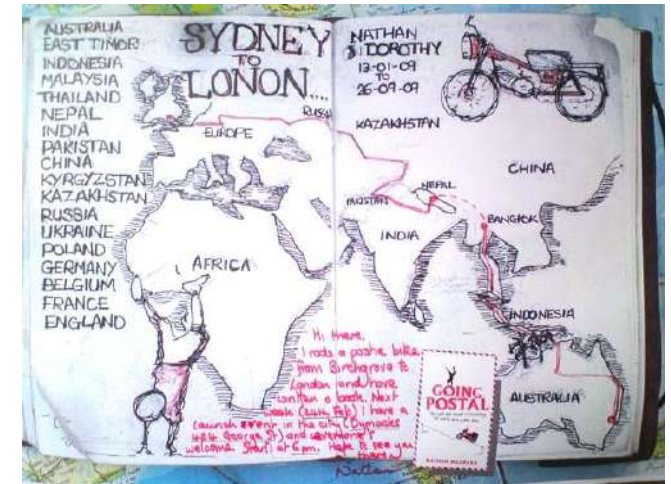 AUSTRALIA
EAST TIMOR
INDONESIA
MALAYSIA
THAILAND
NEPAL
INDIA
PAKISTAN
CHINA
KYRGYZSTAN
KAZAKHSTAN
RUSSIA
UKRAINE
POLAND
GERMANY
BELGIUM
FRANCE
ENGLAND
SYDNEY
TO
LONON....
NATHAN
& DOROTHY
13-01-09
TO
26-09-09
RUSSIA
EUROPE
KAZAKHSTAN
CHINA
NEPAL
PAKISTAN
BANGKOK
INDIA
AFRICA
INDONESIA
AUSTRALIA
Hi there,
I rode a postie bike
from Birchgrove to
London and have
written a book. Next
week (24th Feb) I have a
launch event in the city (Dymocks
George St) and everyone's
welcome. Starts at 6pm. Hope to see you
there
Nathan
GOING
POSTAL